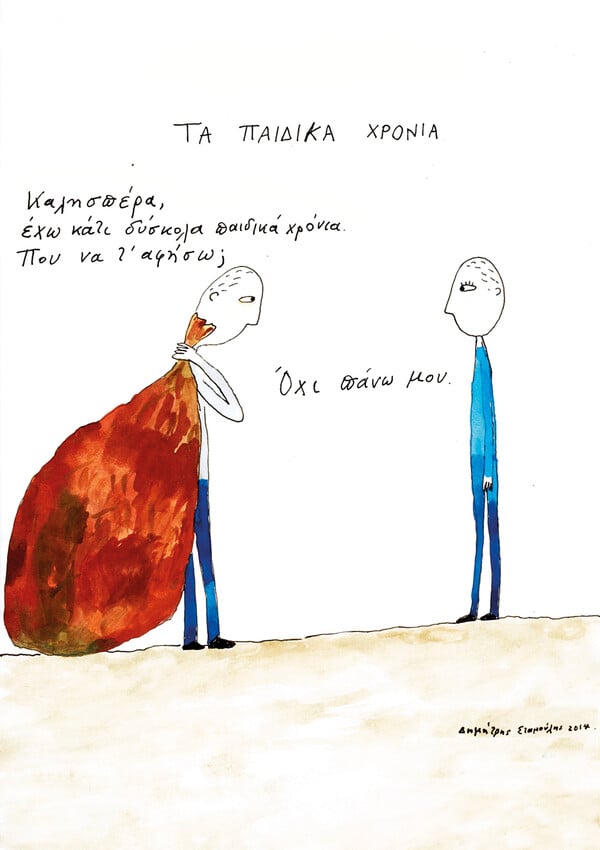 ΤΑ ΠΑΙΔΙΚΑ ΧΡΟΝΙΑ
Καλησπέρα,
έχω κάτι δύσκολα παιδικά χρόνια.
Που να τ'αφήσω;
Όχι πάνω μου.
Δημήτρης Σταμούλης 2014.